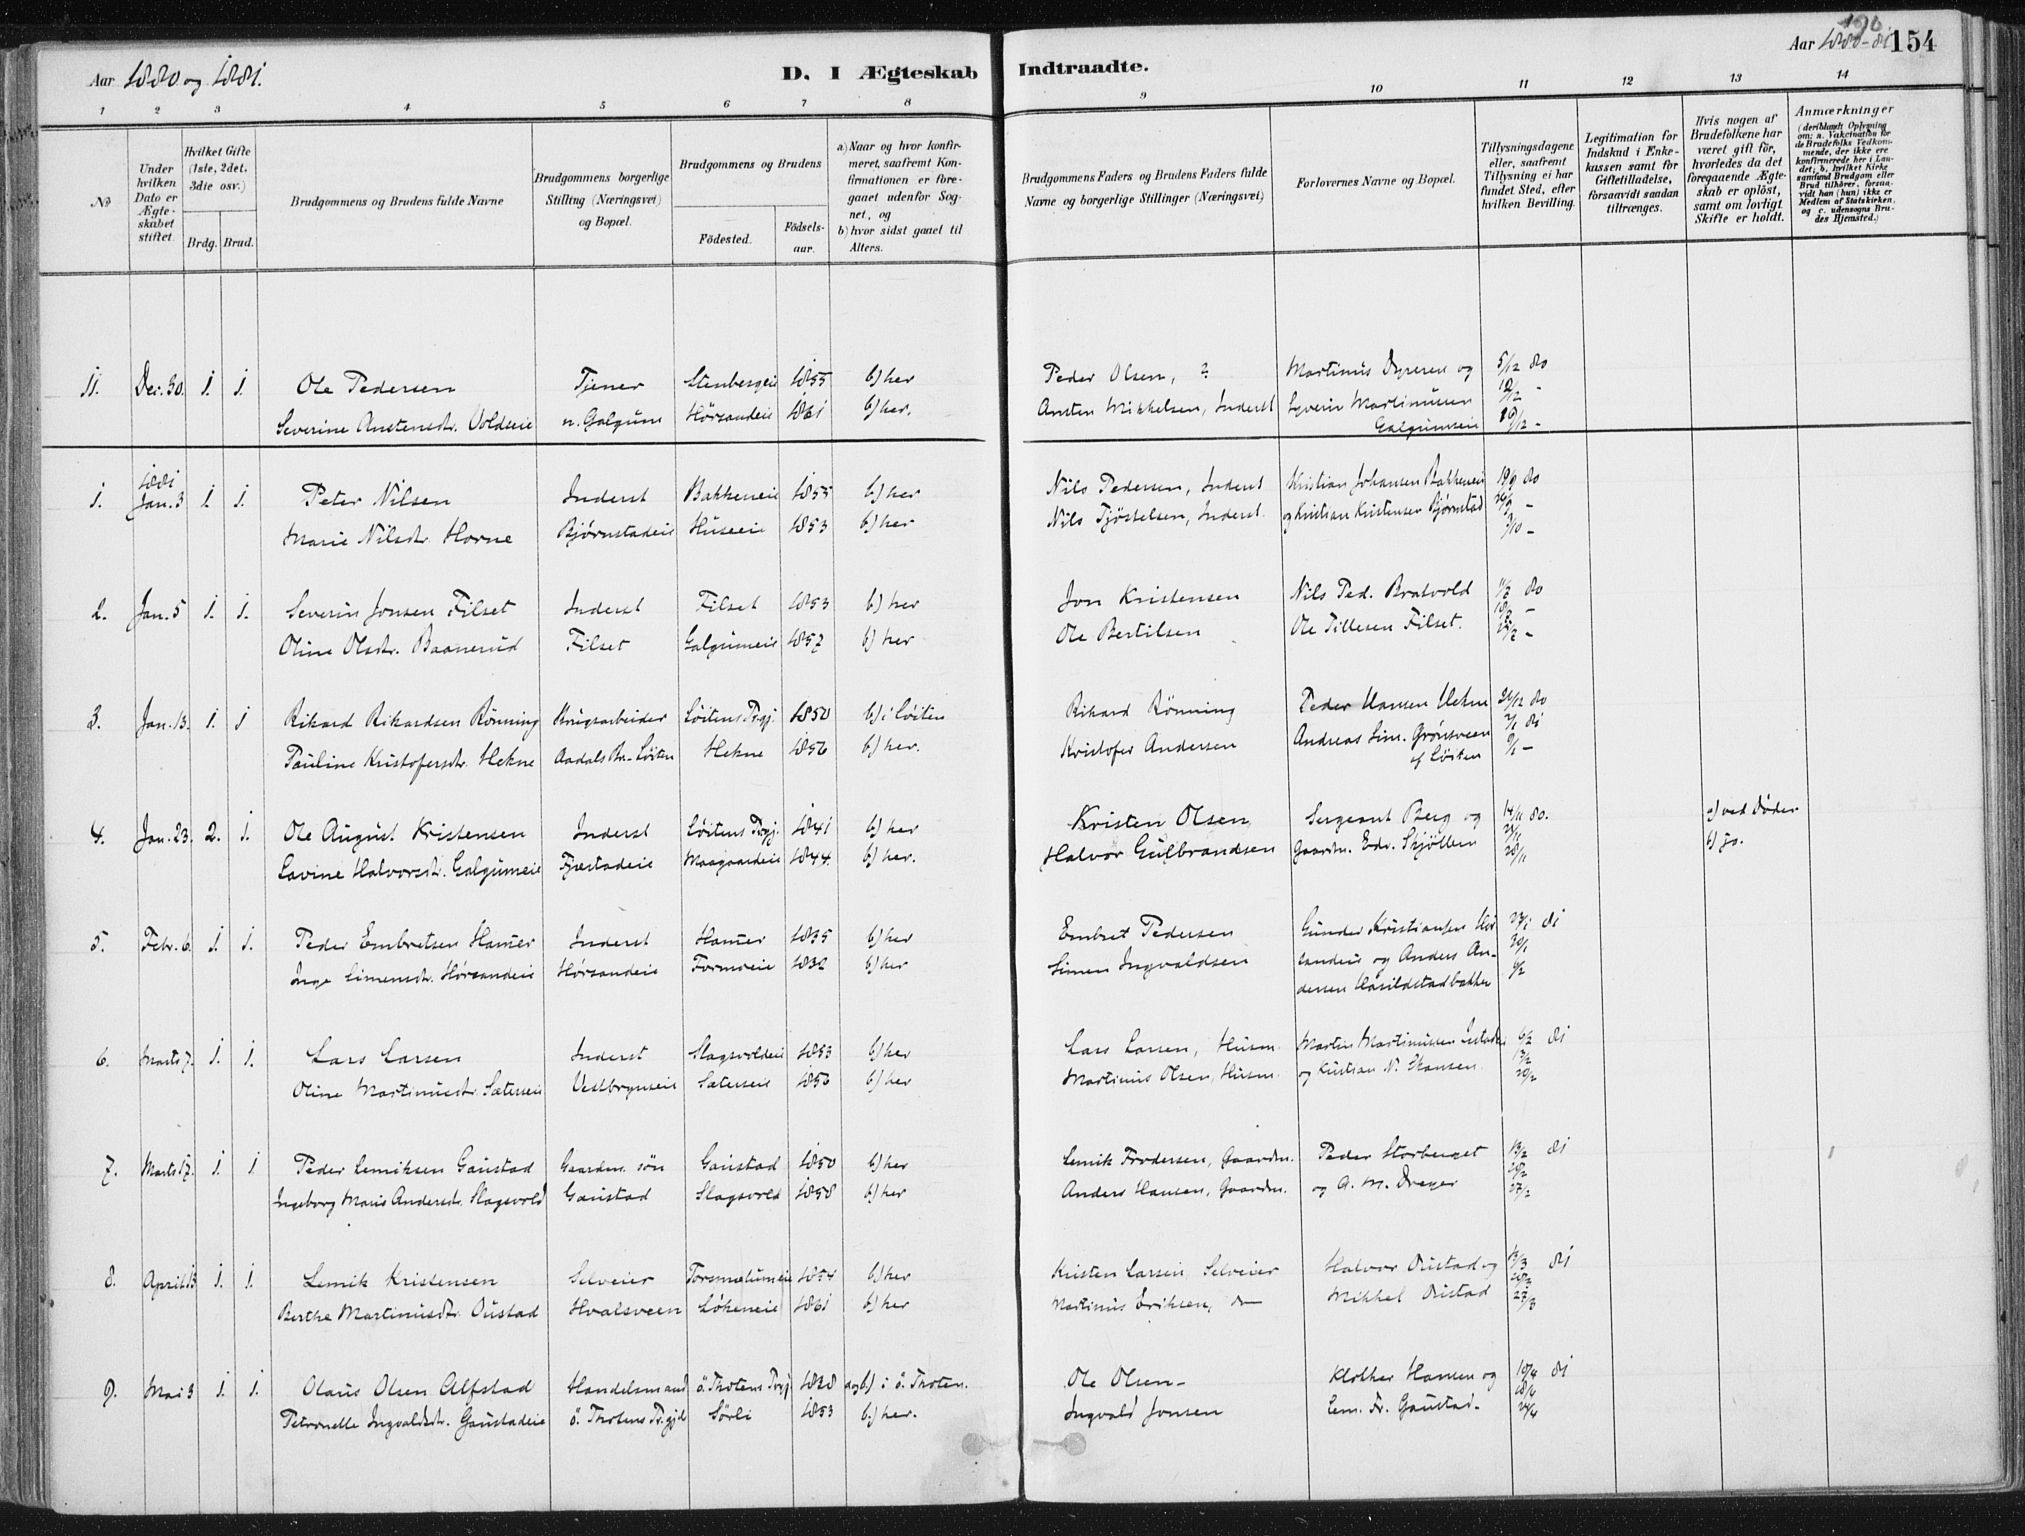 Aar 1880 og 1881.
D. I Ægteskab Indtraadte.
Aar 1880-81 154
1 2 3 4 5 6 7 8 9 10 11 12 13 14
No
Under hvilken Dato er Ægteskabet stiftet.
Hvilket Gifte (1ste, 2det, 3die osv.)
Brdg. Brud.
Brudgommens og Brudens fulde Navne
Brudgommens borgerlige Stilling (Næringsvei) og Bopæl.
Brudgommens og Brudens
Födested. Födselsaar.
a) Naar og hvor konfirmeret, saafremt Konfirmationen er foregaaet udenfor Sognet, og
b) hvor sidst gaaet til Alters.
Brudgommens Faders og Brudens Faders fulde Navne og borgerlige Stillinger (Næringsvei)
Forlovernes Navne og Bopæl.
Tillysningsdagene eller, saafremt Tillysning ei har fundet Sted, efter hvilken Bevilling.
Legitimation for Indskud i Enkekassen samt for Giftetilladelse, forsaavidt saadan tiltrænges.
Hvis nogen af Brudefolkene har været gift för, hvorledes da det foregaaende Ægteskab er oplöst, samt om lovligt Skifte er holdt.
Anmærkninger (deriblandt Oplysning om: a. Vakcination for de Brudefolks Vedkommende, der ikke ere konfirmerede her i Landet; b. hvilket Kirkesamfund Brudgom eller Brud tilhörer, forsaavidt han (hun) ikke er Medlem af Statskirken, og c. udensogns Brudes Hjemsted.)
11. Dec. 30. 1. 1. Ole Pedersen Tjener Stenbergeie 1855 b) her Peder Olsen, ? Martinus Dyreren og 5/12 80
Severine Anstensdr. Voldseie n. Galgum Hörsandeie 1861 b) her. Ansten Mikkelsen, Inderst Syverin Martinusen 12/12 -
Galgumseie 19/12 -
1881
1. Jan. 3 1. 1. Peter Nilsen Inderst Bakkeneie 1855 b) her Nils Pedersen, Inderst Kristian Johansen Bakkeneie 19/9 80
Marie Nilsdr. Horne Bjørnstadeie Huseeie 1853 b) her Nils Tjöstelsen, Inderst. og Kristian Kristensen Bjørnstad 26/9 -
3/10 -
2. Jan. 5 1. 1. Severin Jonsen Filset Inderst Filset 1853 b) her Jon Kristensen Nils Ped. Bratvold 11/7 80
Oline Olsdr. Baanerud Filset Galgumeie 1857 b) her Ole Bertilsen Ole Tillesen Filset. 18/7 -
25/7 -
3. Jan. 13. 1. 1 Rikard Rikardsen Rönning Brugsarbeider Löitens Prgj. 1850 b) i Löiten Rikard Rönning Peder Hansen Hekne 26/12 80
Pauline Kristofersdr. Hekne Aadals Br. Löiten Hekne 1856 b) her. Kristofer Andersen Andreas Sim. Grönsveen 2/1 81
af Löiten 9/1 -
4. Jan. 23. 2. 1. Ole August Kristensen Inderst Löitens Prgj. 1841 b) her Kristen Olsen Sergeant Berg og 14/11 80. a) ved Döden
Lavine Halvorsdr. Galgumeie Fjæstadeie Maagaardeie 1844. b) her. Halvor Gulbrandsen Gaardm. Edv. Skjöllen 21/11 b) jo.
28/11
5. Febr. 6. 1. 1. Peder Embretsen Hamer Inderst Hamer 1835 b) her Embret Pedersen Gunder Kristiansen Hör 23/1 81
Inge Simensdr. Hörsandeie Hörsandeie Formoeie 1832 b) her Simen Ingvaldsen sandeie og Anders An- 30/1
dersen Havildstadbakken 6/2
6. Marts 7. 1. 1. Lars Larsen Inderst Slagsvoldeie 1853 b) her Lars Larsen, Husm. Martin Martinussen 6/2 81
Oline Martinusdr. Sæterseie Vestbryneie Sæterseie 1850 b) her Martinus Olsen, Husm. og Kristian N. Hansen 13/2
20/2
7. Marts 17. 1. 1 Peder Lemiksen Gaustad Gaardm. sön Gaustad 1850 b) her Lemik Fredersen, Gaardm. Peder Storberget 13/2 81
Ingeborg Marie Andersdr. Slagsvold Gaustad Slagsvold 1858 b) her Anders Hansen, Gaardm. og A. M. Dreyer 20/2
27/2
8. April 13 1. 1. Lemik Kristensen Selveier Torsmælumeie 1854 b) her Kristen Larsen Selveier Halvor Oustad og 13/3 81
Berthe Martinusdr. Oustad Hvalsveen Lökeneie 1861 b) her Martinus Eriksen, do Mikkel Oustad 20/3
27/3
9. Mai 3 1. 1. Olaus Olsen Alfstad Handelsmand ö. Thotens Prgj. 1828 a og b) i ö. Thoten. Ole Olsen - Klokker Hansen og 10/4 81
Petronelle Ingvaldsdr. Gaustadeie ö. Thotens Prgjd Sörli 1853 b) her. Ingvald Jonsen Lem. Fr. Gaustad. 18/4
24/4